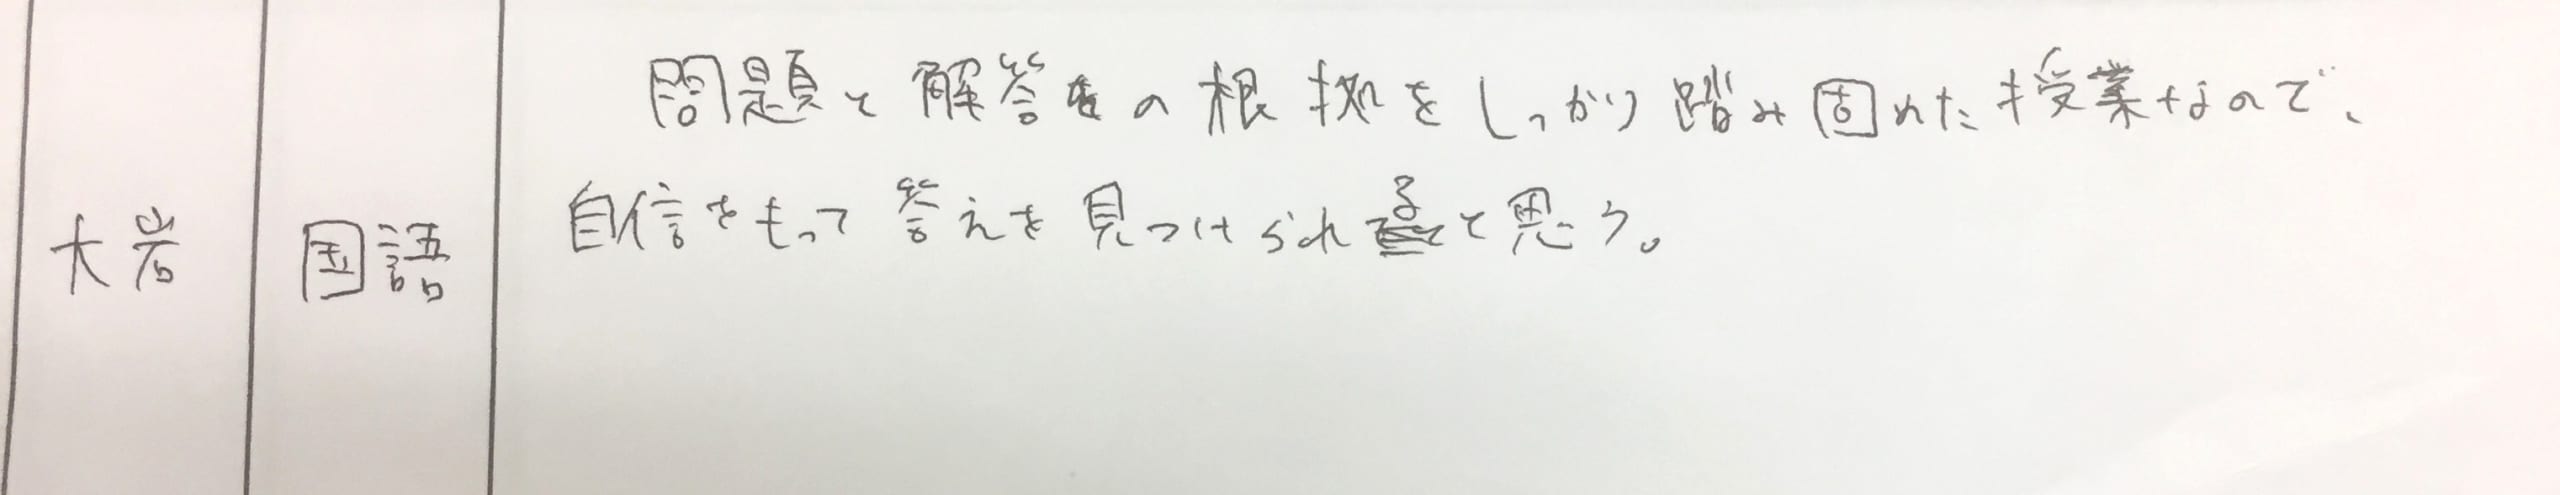 大岩
国語
問題と解答の根拠をしっかり踏み固めた授業なので、
自信をもって答えを見つけられると思う。